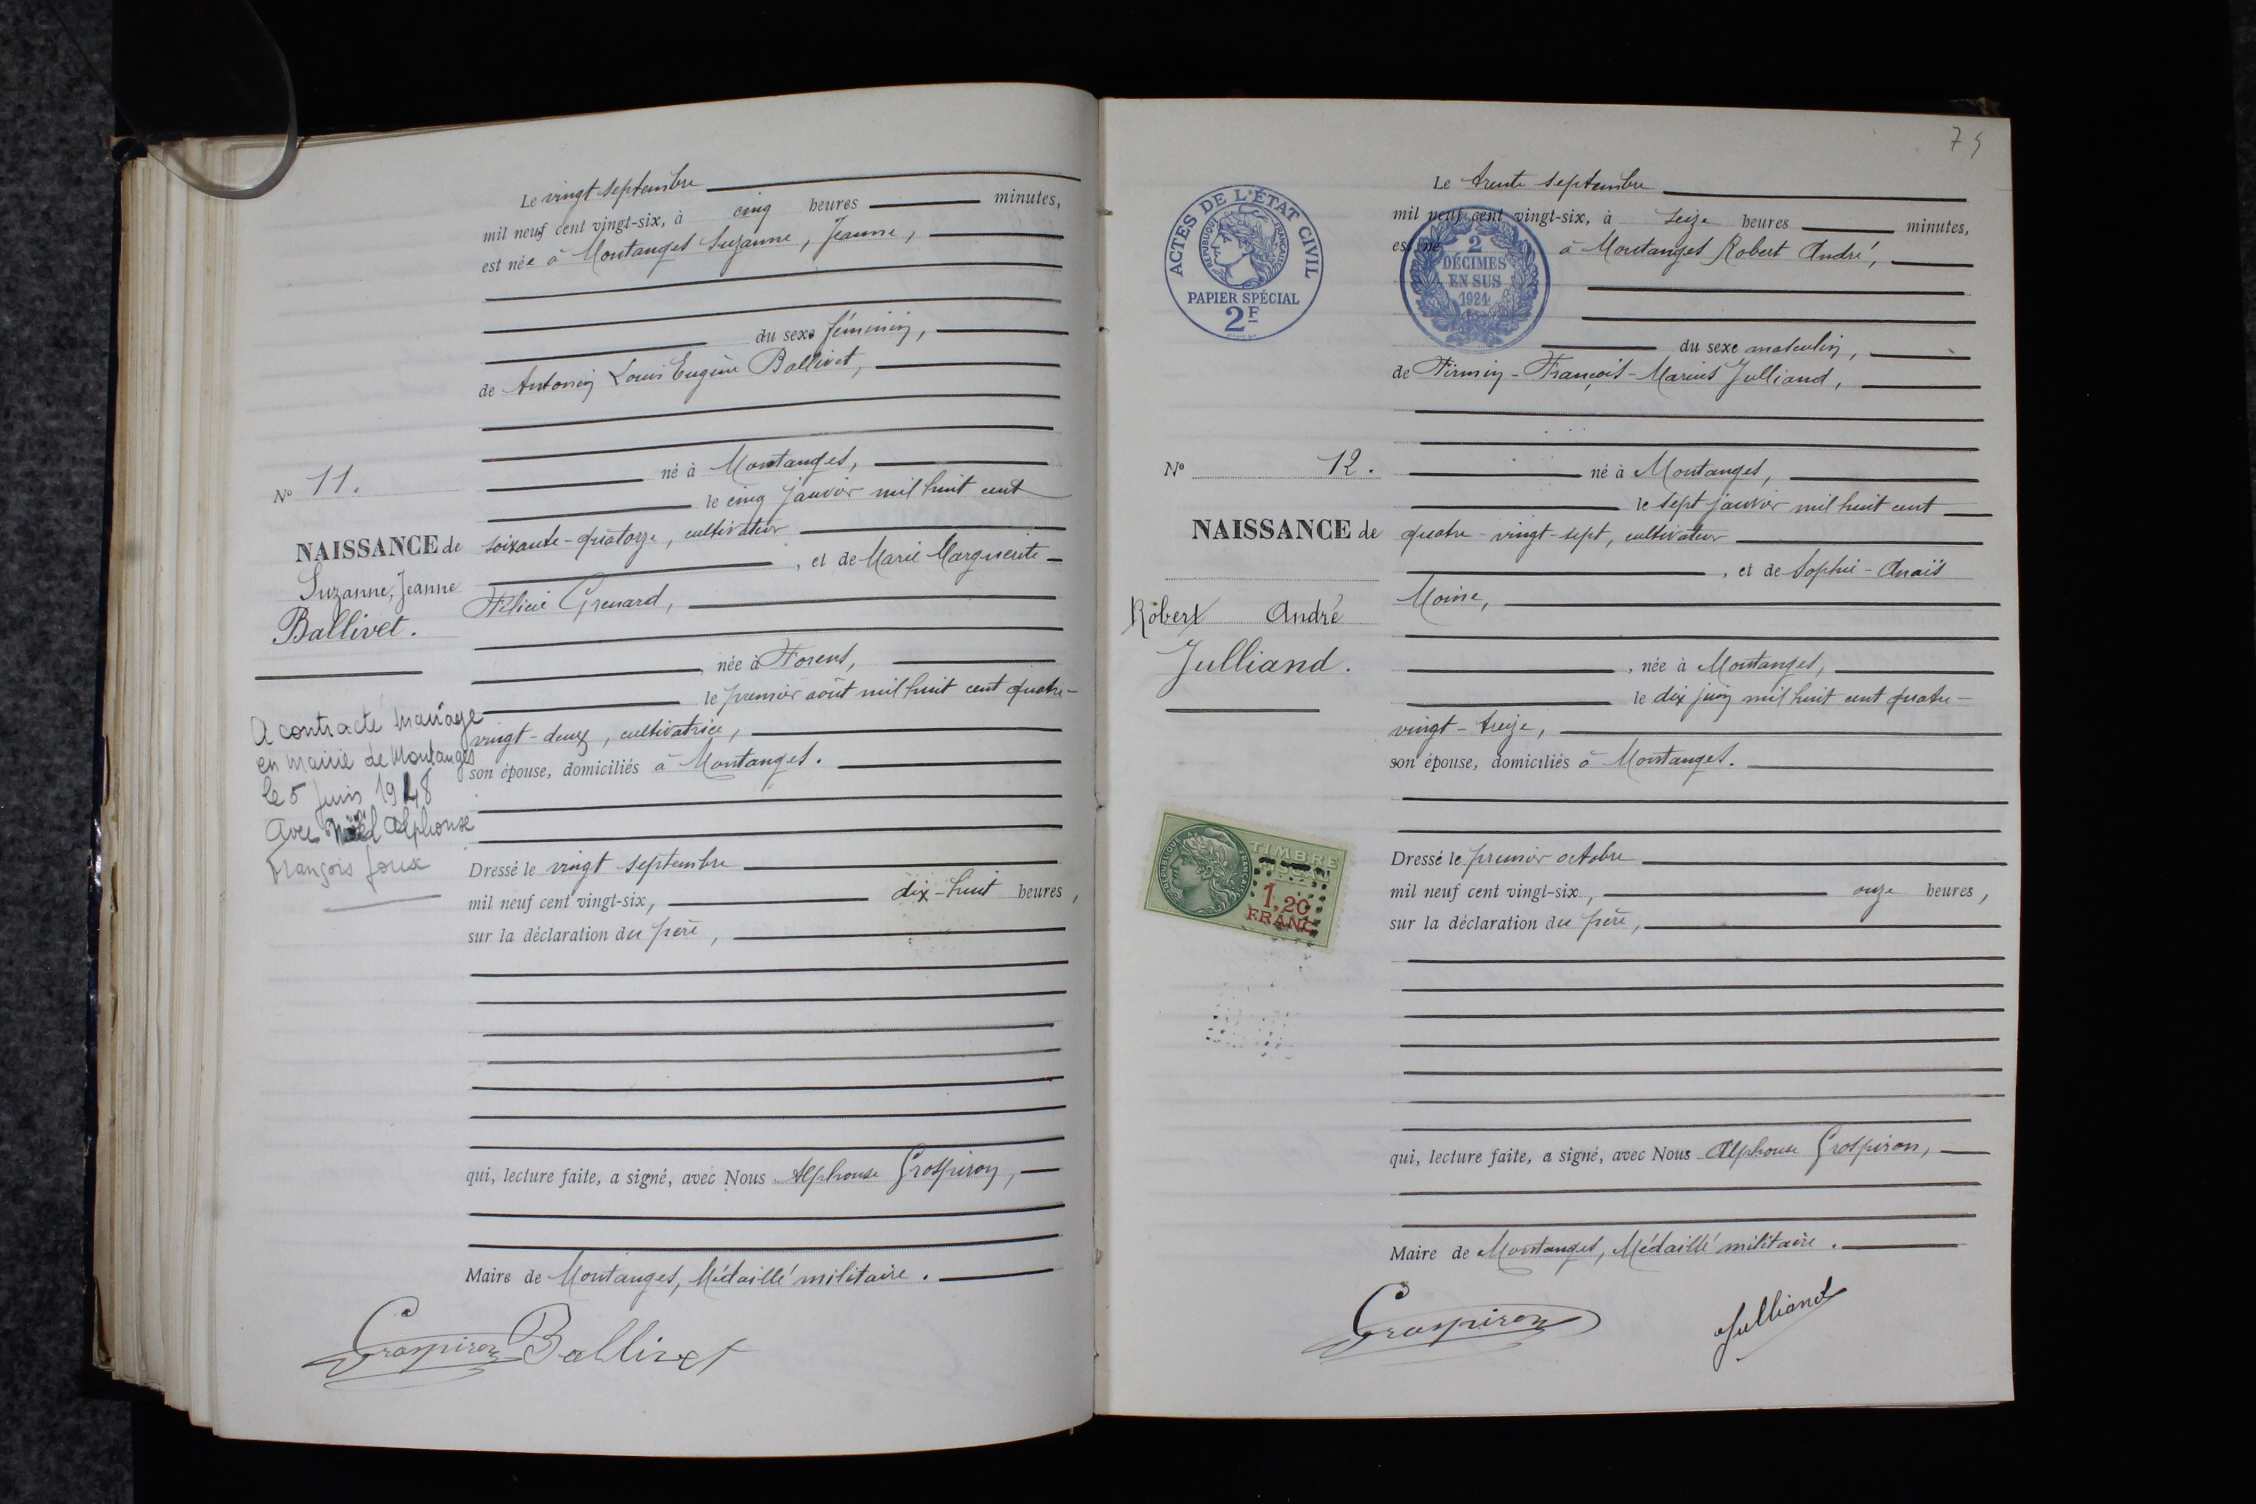 Le vingt septembre
mil neuf cent vingt-six, à cinq heures minutes,
est née à Montanges Suzanne, Jeanne,
du sexe féminin,
de Antonin Louis Eugène Ballivet,
né à Montanges,
le cinq janvier mil huit cent
soixante-quatorze, cultivateur
, et de Marie Marguerite
Félicie Grenard,
née à Forens,
le premier août mil huit cent quatre-
vingt-deux, cultivatrice,
son épouse, domiciliés à Montanges.
Dressé le vingt septembre
mil neuf cent vingt-six, dix-huit heures,
sur la déclaration du père,
qui, lecture faite, a signé, avec Nous Alphonse Grospiron,
Maire de Montanges, Médaillé militaire.
Grospiron Ballivet
No 11.
NAISSANCE de
Suzanne, Jeanne
Ballivet.
A contracté mariage
en mairie de Montanges
le 5 Juin 1948
avec Noël Alphonse
François Joux
74
ACTES DE L'ÉTAT CIVIL
RÉPUBLIQUE FRANÇAISE
PAPIER SPÉCIAL
2F
2
DÉCIMES
EN SUS
1924
Le trente septembre
mil neuf cent vingt-six, à seize heures minutes,
est né à Montanges Robert André,
du sexe masculin,
de Firmin-François-Marius Julliand,
né à Montanges,
le sept janvier mil huit cent
quatre-vingt-sept, cultivateur
, et de Sophie-Anaïs
Moine,
, née à Montanges,
le dix juin mil huit cent quatre-
vingt-treize,
son épouse, domiciliés à Montanges.
Dressé le premier octobre
mil neuf cent vingt-six, onze heures,
sur la déclaration du père,
qui, lecture faite, a signé, avec Nous Alphonse Grospiron,
Maire de Montanges, Médaillé militaire.
Grospiron Julliand
No 12.
NAISSANCE de
Robert André
Julliand.
TIMBRE
1,20
FRANC